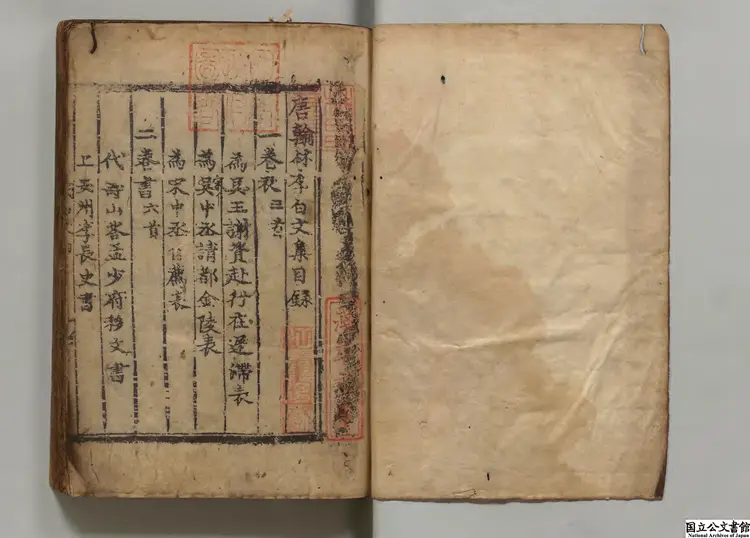 唐翰林李白文集目録
一卷表三首
為吳王謝責赴行在遲滯表
為吳中丞請都金陵表
為宋中丞自薦表
二卷書六首
代壽山荅孟少府移文書
上安州李長史書
国立公文書館
National Archives of Japan